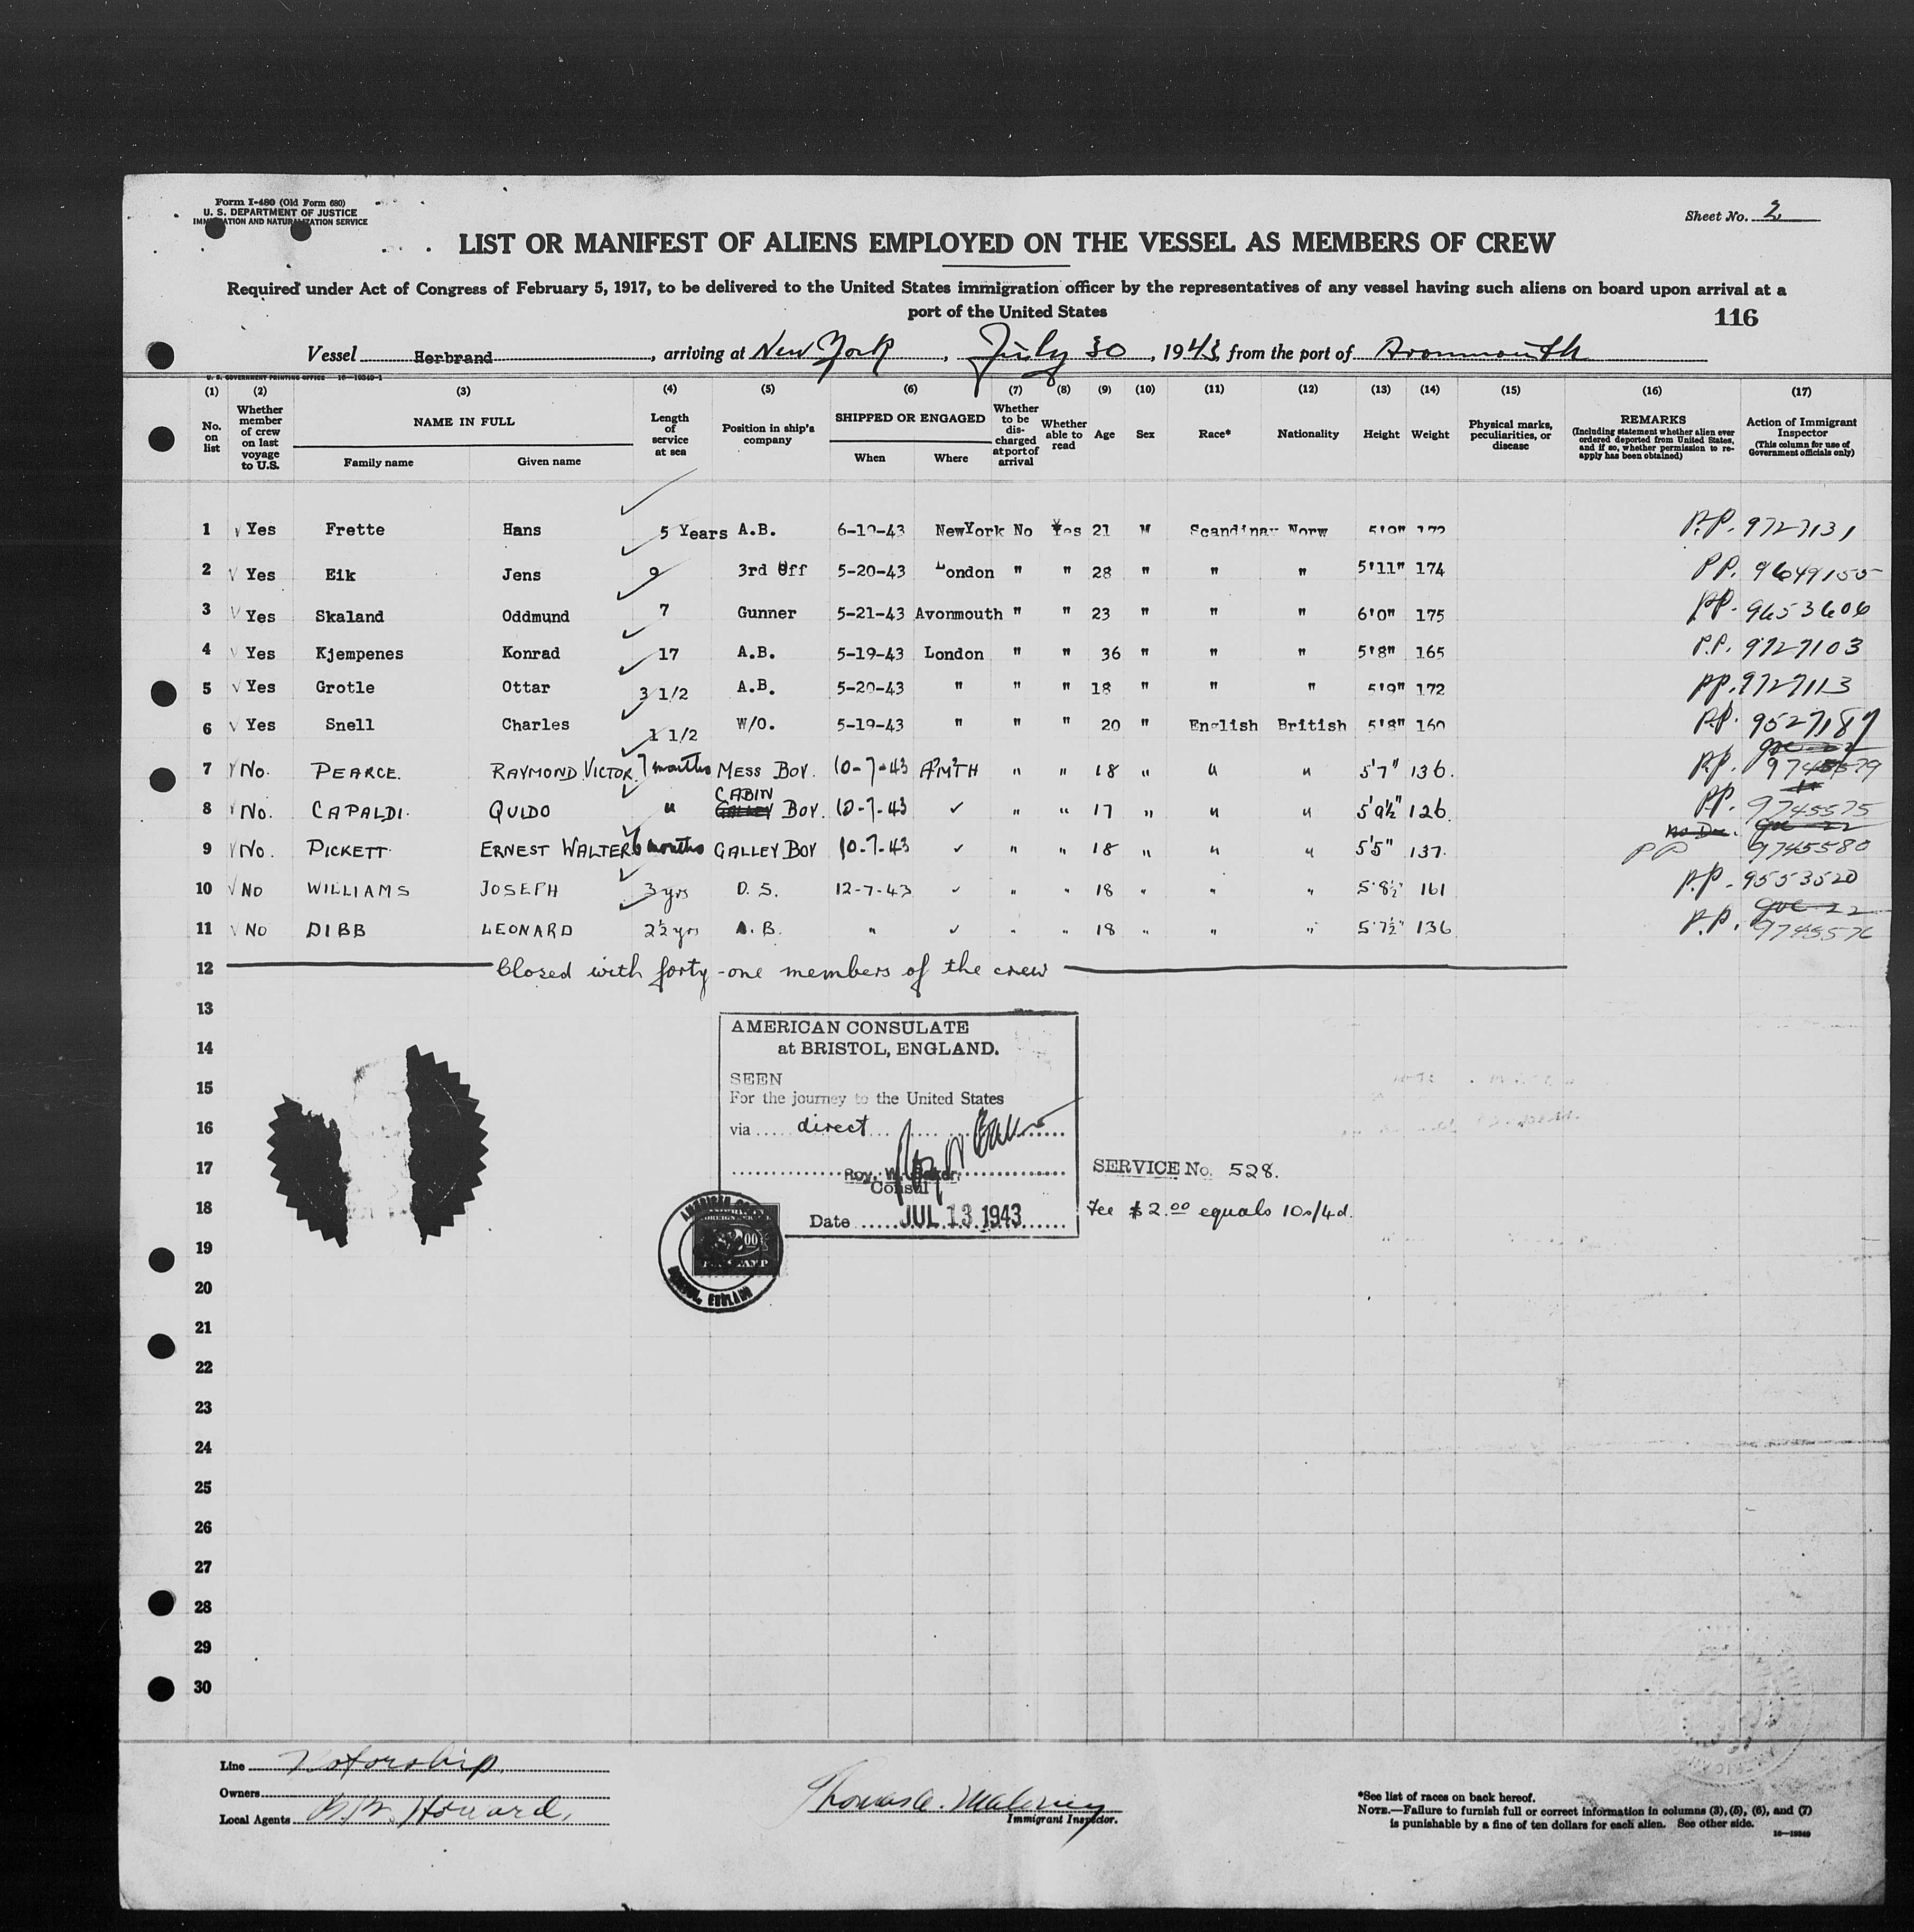 Form I-480 (Old Form 680)
U. S. DEPARTMENT OF JUSTICE
IMMIGRATION AND NATURALIZATION SERVICE
Sheet No. 2
LIST OR MANIFEST OF ALIENS EMPLOYED ON THE VESSEL AS MEMBERS OF CREW
Required under Act of Congress of February 5, 1917, to be delivered to the United States immigration officer by the representatives of any vessel having such aliens on board upon arrival at a
port of the United States
116
Vessel Herbrand, arriving at New York, July 30, 1943, from the port of Avonmouth
U. S. GOVERNMENT PRINTING OFFICE 16-19349-1
(1) (2) (3) (4) (5) (6) (7) (8) (9) (10) (11) (12) (13) (14) (15) (16) (17)
No. on list
Whether member of crew on last voyage to U.S.
NAME IN FULL
Family name
Given name
Length of service at sea
Position in ship's company
SHIPPED OR ENGAGED
When
Where
Whether to be discharged at port of arrival
Whether able to read
Age
Sex
Race*
Nationality
Height
Weight
Physical marks, peculiarities, or disease
REMARKS
(Including statement whether alien ever ordered deported from United States, and if so, whether permission to re-apply has been obtained)
Action of Immigrant Inspector
(This column for use of Government officials only)
1 Yes Frette Hans 5 Years A.B. 6-19-43 NewYork No Yes 21 M Scandinav Norw 5'9" 172 P.P. 9727131
2 Yes Eik Jens 9 3rd Off 5-20-43 London " " 28 " " " 5'11" 174 PP. 9649155
3 Yes Skaland Oddmund 7 Gunner 5-21-43 Avonmouth " " 23 " " " 6'0" 175 PP. 9653606
4 Yes Kjempenes Konrad 17 A.B. 5-19-43 London " " 36 " " " 5'8" 165 P.P. 9727103
5 Yes Grotle Ottar 3 1/2 A.B. 5-20-43 " " " 18 " " " 5'9" 172 PP. 9727113
6 Yes Snell Charles 1 1/2 W/O. 5-19-43 " " " 20 " English British 5'8" 160 P.P. 9527187
7 No. PEARCE. RAYMOND VICTOR 7 months MESS BOY. 10-7-43 A'M'TH " " 18 " " " 5'7" 136. P.P. 9745579
8 No. CAPALDI. QUIDO " CABIN GALLEY BOY. 10-7-43 ✓ " " 17 " " " 5'9½" 126. P.P. 9745575
9 No. PICKETT ERNEST WALTER 6 months GALLEY BOY 10-7-43 ✓ " " 18 " " " 5'5" 137. PP 9745580
10 No WILLIAMS JOSEPH 3 yrs O.S. 12-7-43 ✓ " " 18 " " " 5'8½" 161 P.P. 9553520
11 No DIBB LEONARD 2½ yrs A.B. " ✓ " " 18 " " " 5'7½" 136 P.P. 9745576
12 Closed with forty-one members of the crew
13
14
15
16
17
18
19
20
21
22
23
24
25
26
27
28
29
30
AMERICAN CONSULATE
at BRISTOL, ENGLAND.
SEEN
For the journey to the United States
via direct
Roy. W. Baker.
Consul
Date JUL 13 1943
SERVICE No. 528.
Fee $2.00 equals 10s/4d.
Line Notorship
Owners
Local Agents B.B. Howard,
Thomas C. Maloney
Immigrant Inspector.
*See list of races on back hereof.
NOTE.—Failure to furnish full or correct information in columns (3), (5), (6), and (7)
is punishable by a fine of ten dollars for each alien. See other side.
16-19349